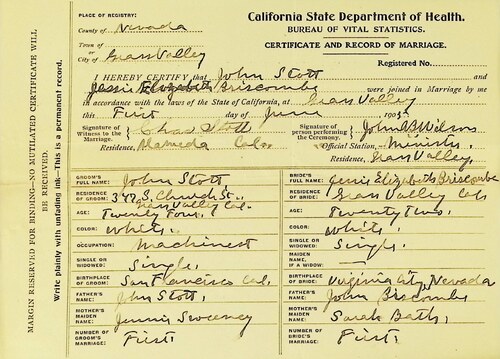 PLACE OF REGISTRY:
County of Nevada
Town of
or
City of Grass Valley
California State Department of Health.
BUREAU OF VITAL STATISTICS.
CERTIFICATE AND RECORD OF MARRIAGE.
Registered No.
I HEREBY CERTIFY that John Stott
and Jessie Elizabeth Briscombe were joined in Marriage by me
in accordance with the laws of the State of California, at Grass Valley
this First day of June 1905
Signature of Witness to the Marriage, Chas Stott
Residence, Alameda Cal.
Signature of person performing the Ceremony, John B Wilson
Official Station, Minister
Residence, Grass Valley,
MARGIN RESERVED FOR BINDING—NO MUTILATED CERTIFICATE WILL BE RECEIVED.
Write plainly with unfading ink—This is a permanent record.
GROOM'S FULL NAME: John Stott
BRIDE'S FULL NAME: Jessie Elizabeth Briscombe
RESIDENCE OF GROOM: 349 S. Church St. Grass Valley Cal.
RESIDENCE OF BRIDE: Grass Valley Cal
AGE: Twenty Four.
AGE: Twenty Two.
COLOR: White.
COLOR: White.
OCCUPATION: Machinest
SINGLE OR WIDOWED: Single.
SINGLE OR WIDOWED: Single.
MAIDEN NAME, IF A WIDOW:
BIRTHPLACE OF GROOM: San Francisco Cal.
BIRTHPLACE OF BRIDE: Virginia City, Nevada
FATHER'S NAME: John Stott.
FATHER'S NAME: John Briscombe
MOTHER'S MAIDEN NAME: Jennie Sweeney
MOTHER'S MAIDEN NAME: Sarah Bath.
NUMBER OF GROOM'S MARRIAGE: First.
NUMBER OF BRIDE'S MARRIAGE: First.